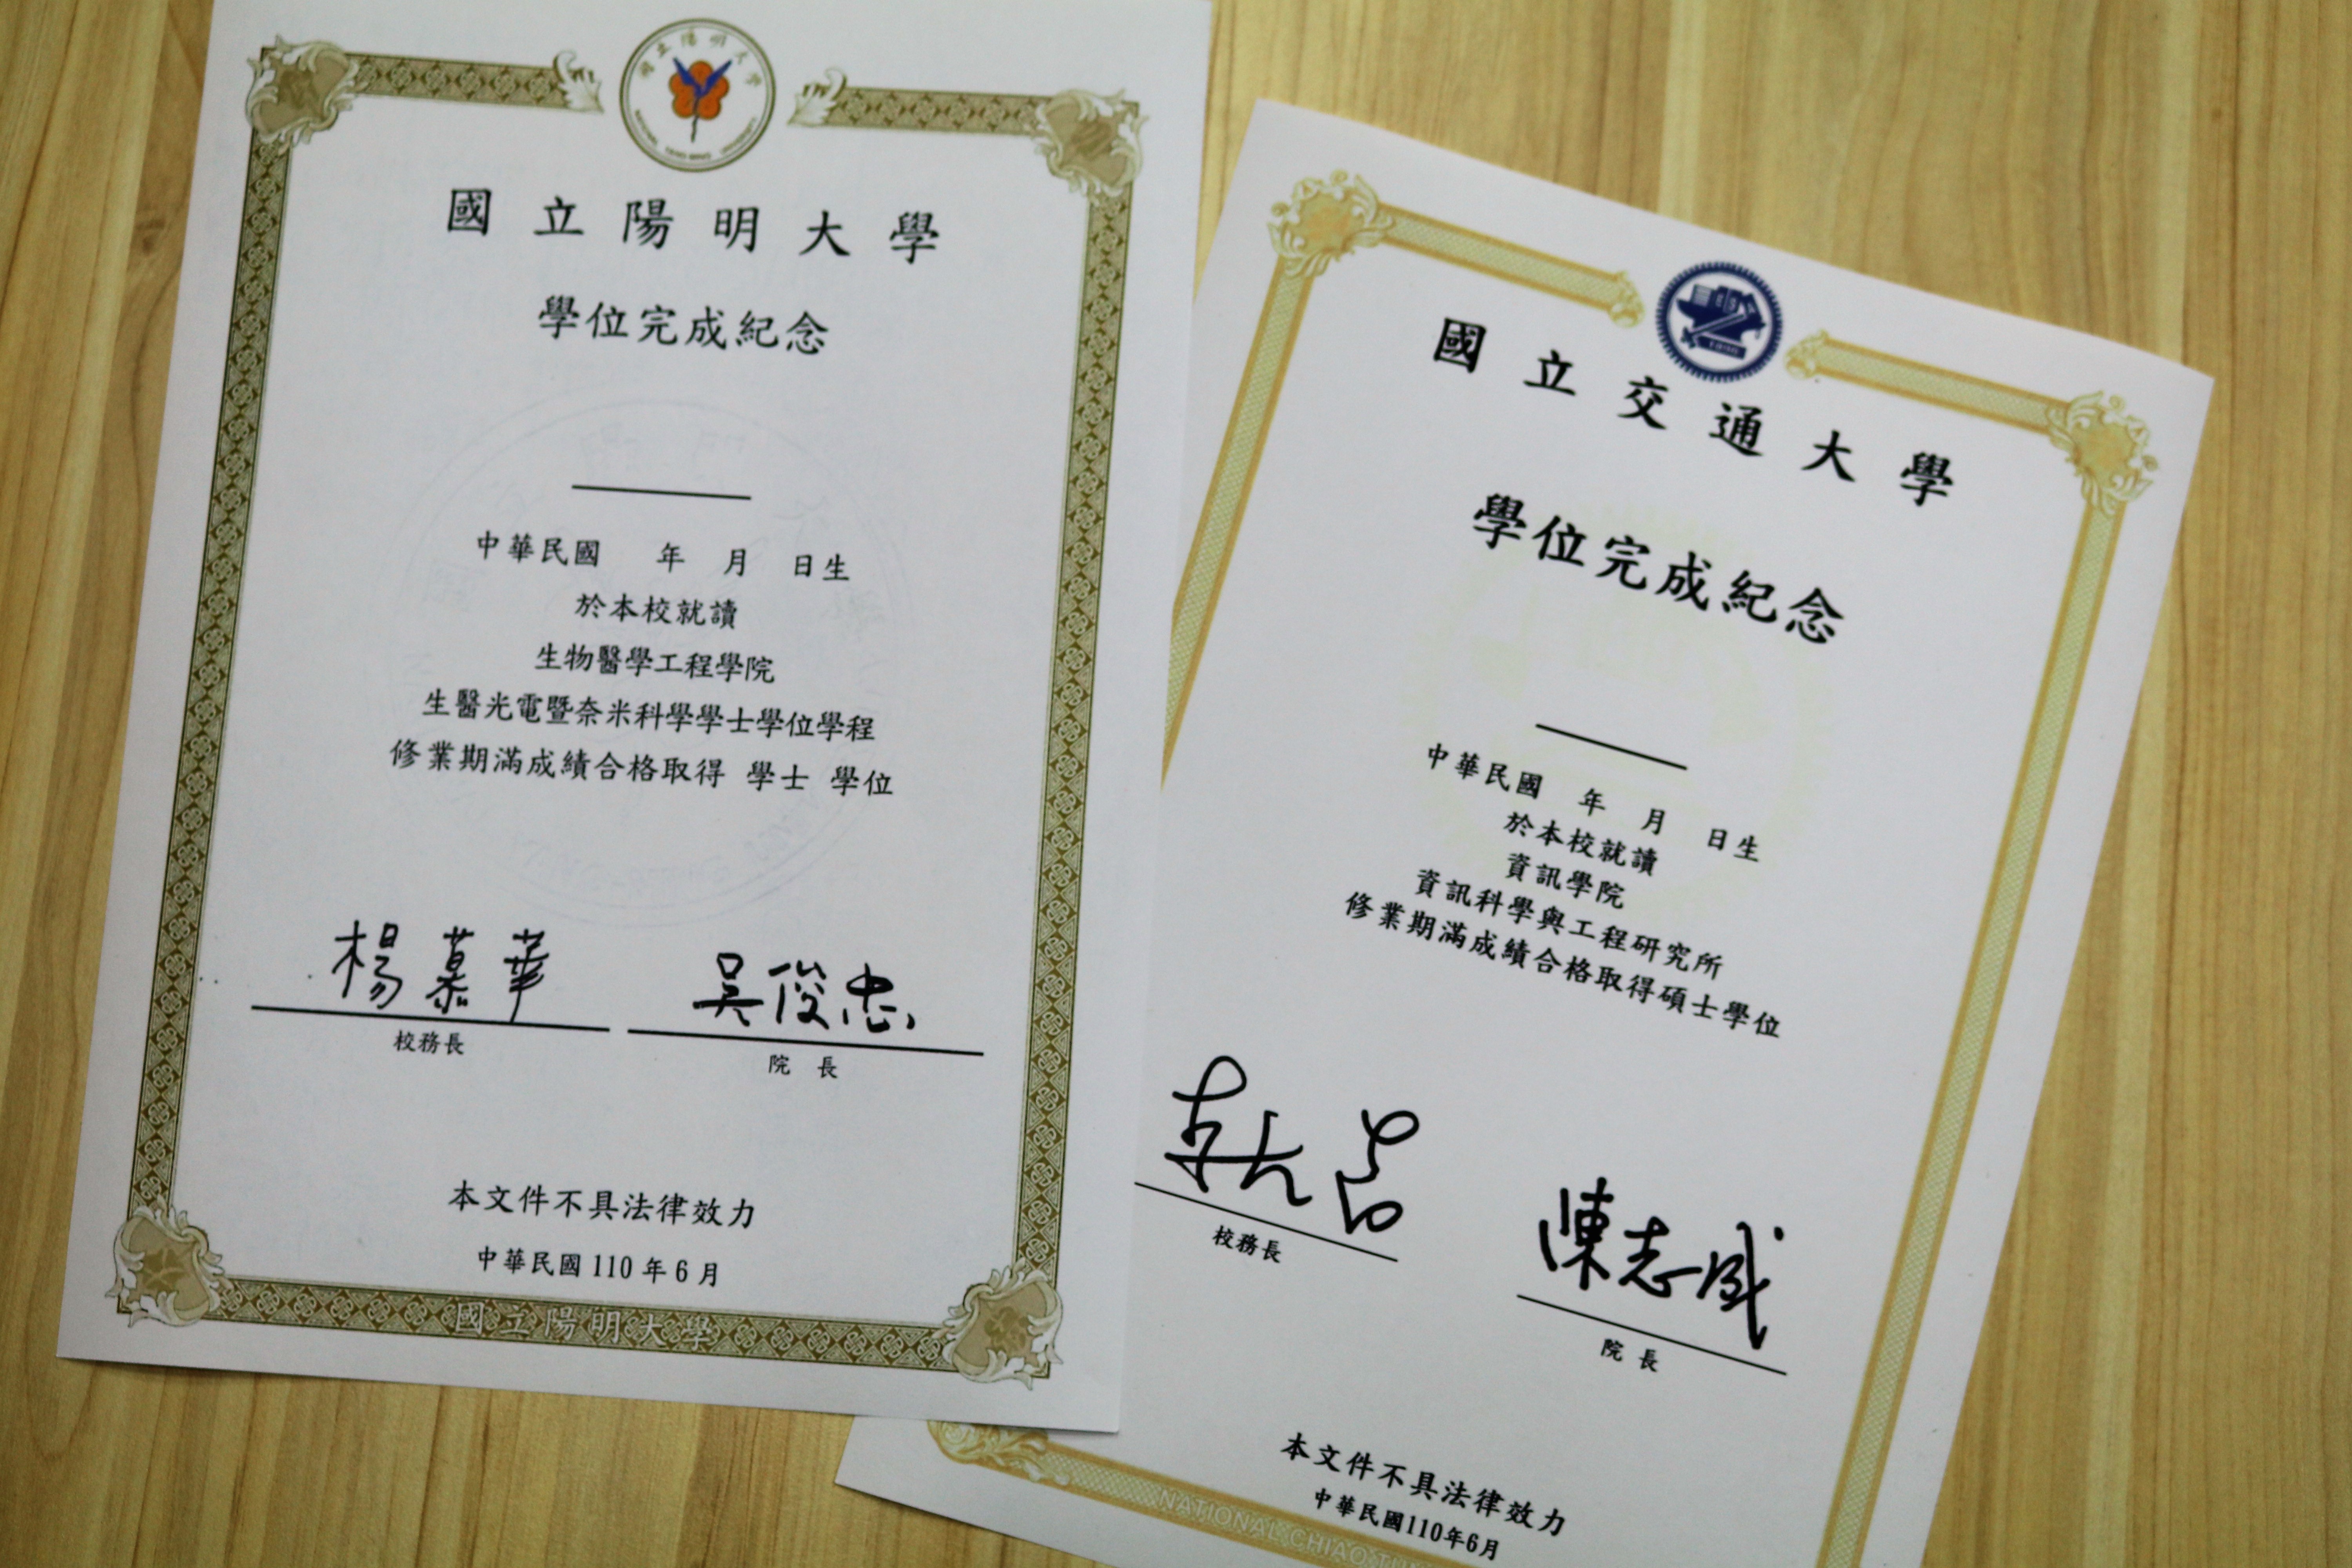 國立陽明大學
國立陽明大學
學位完成紀念
中華民國 年 月 日生
於本校就讀
生物醫學工程學院
生醫光電暨奈米科學學士學位學程
修業期滿成績合格取得 學士 學位
楊慕華
吳俊忠
校務長
院 長
本文件不具法律效力
中華民國 110 年 6 月
國立陽明大學
1896
國立交通大學
學位完成紀念
中華民國 年 月 日生
於本校就讀
資訊學院
資訊科學與工程研究所
修業期滿成績合格取得碩士學位
陳志成
校務長
院 長
本文件不具法律效力
中華民國110年6月
NATIONAL CHIAO